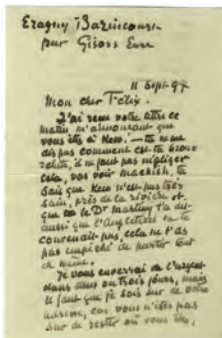 Eragny Bazincourt
par Gisors Eure
11 Sept 97
Mon cher Félix.
J'ai reçu votre lettre ce
matin m'annonçant que
vous êtes à Kew. — tu ne me
dis pas comment est ta bron-
chite, il ne faut pas négliger
cela, vas voir
sais que Kew n'est pas très
sain, près de la rivière et
que le Dr Martiny t'a dit
aussi que l'Angleterre ne te
convenait pas, cela ne t'as
pas empêché de partir tout
de même.
Je vous enverrai de l'argent
dans deux ou trois jours, mais
il faut que je sois sûr de votre
adresse, car vous n'êtes pas
sûr de rester où vous êtes,